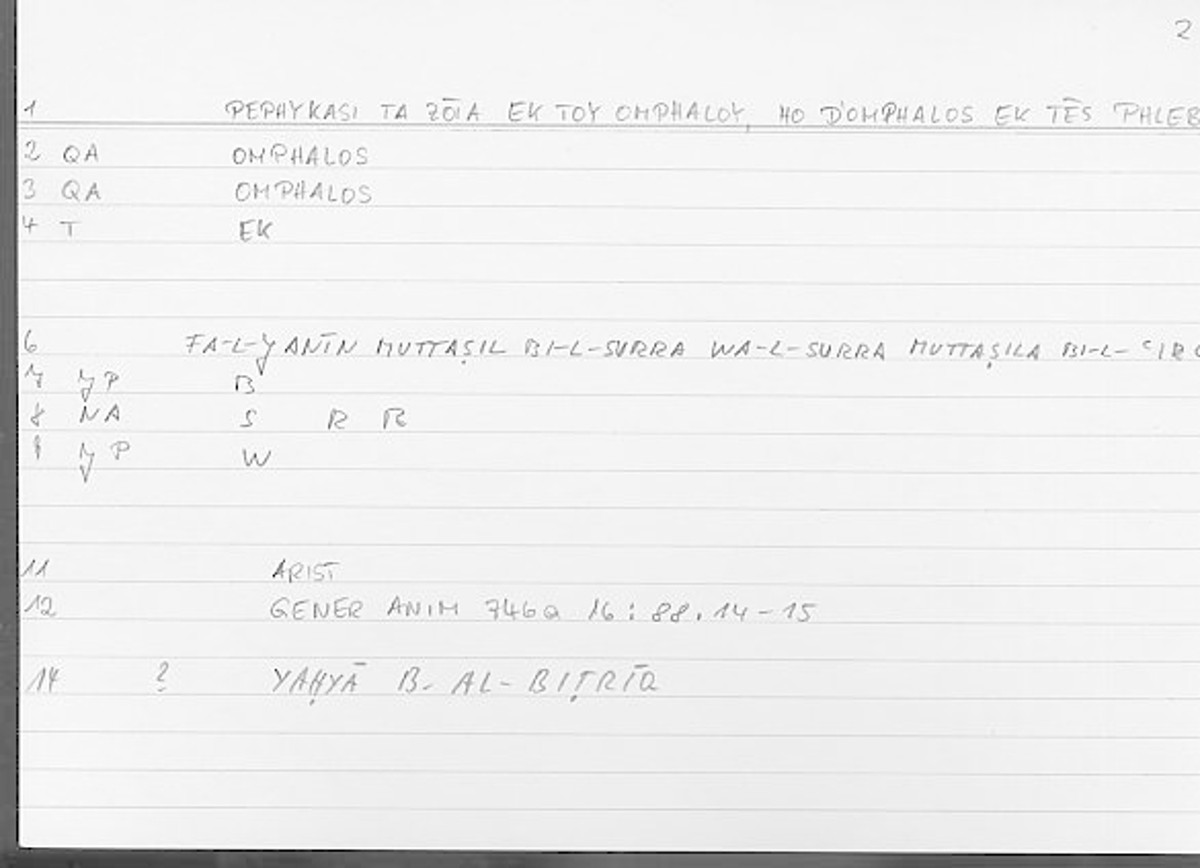 2
1 PEPHYKASI TA ZŌIA EK TOY OMPHALOY, HO D'OMPHALOS EK TĒS PHLEB
2 QA OMPHALOS
3 QA OMPHALOS
4 T EK
6 FA-L-ǦANĪN MUTTAṢIL BI-L-SURRA WA-L-SURRA MUTTAṢILA BI-L-ʿIR
7 ǦP B
8 NA S R R
9 ǦP W
11 ARIST
12 GENER ANIM 746a 16: 88.14-15
14 ? YAḤYĀ B. AL-BIṬRĪQ